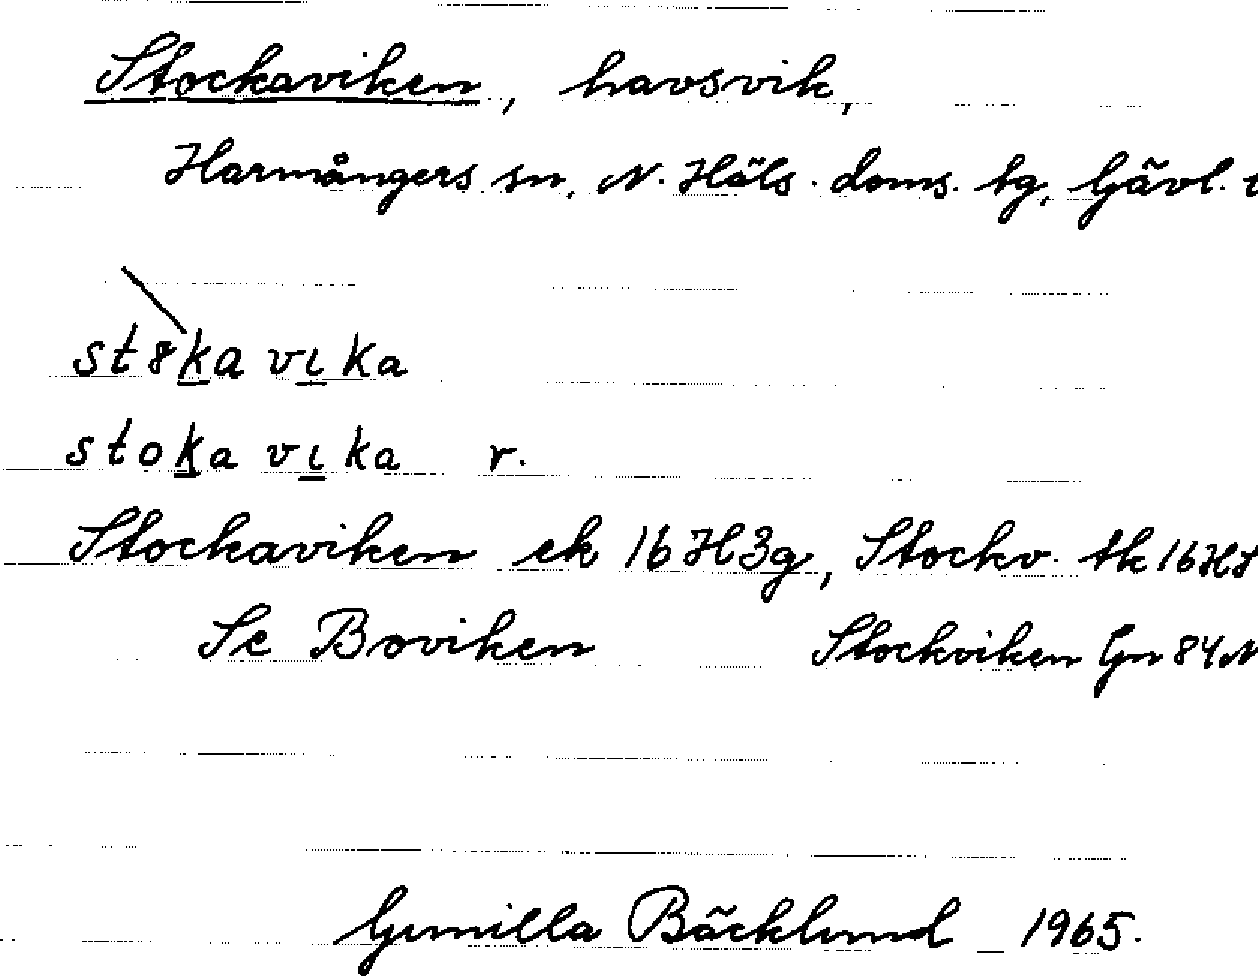 Stockaviken, havsvik,
Harmångers sn, N. Häls. doms. tg, Gävl.
st8ka vɩka
stoka vɩka r.
Stockaviken ek 16H3g, Stockv. tk 16H
Se Boviken Stockviken Gn 84
Gunilla Bäcklund 1965.